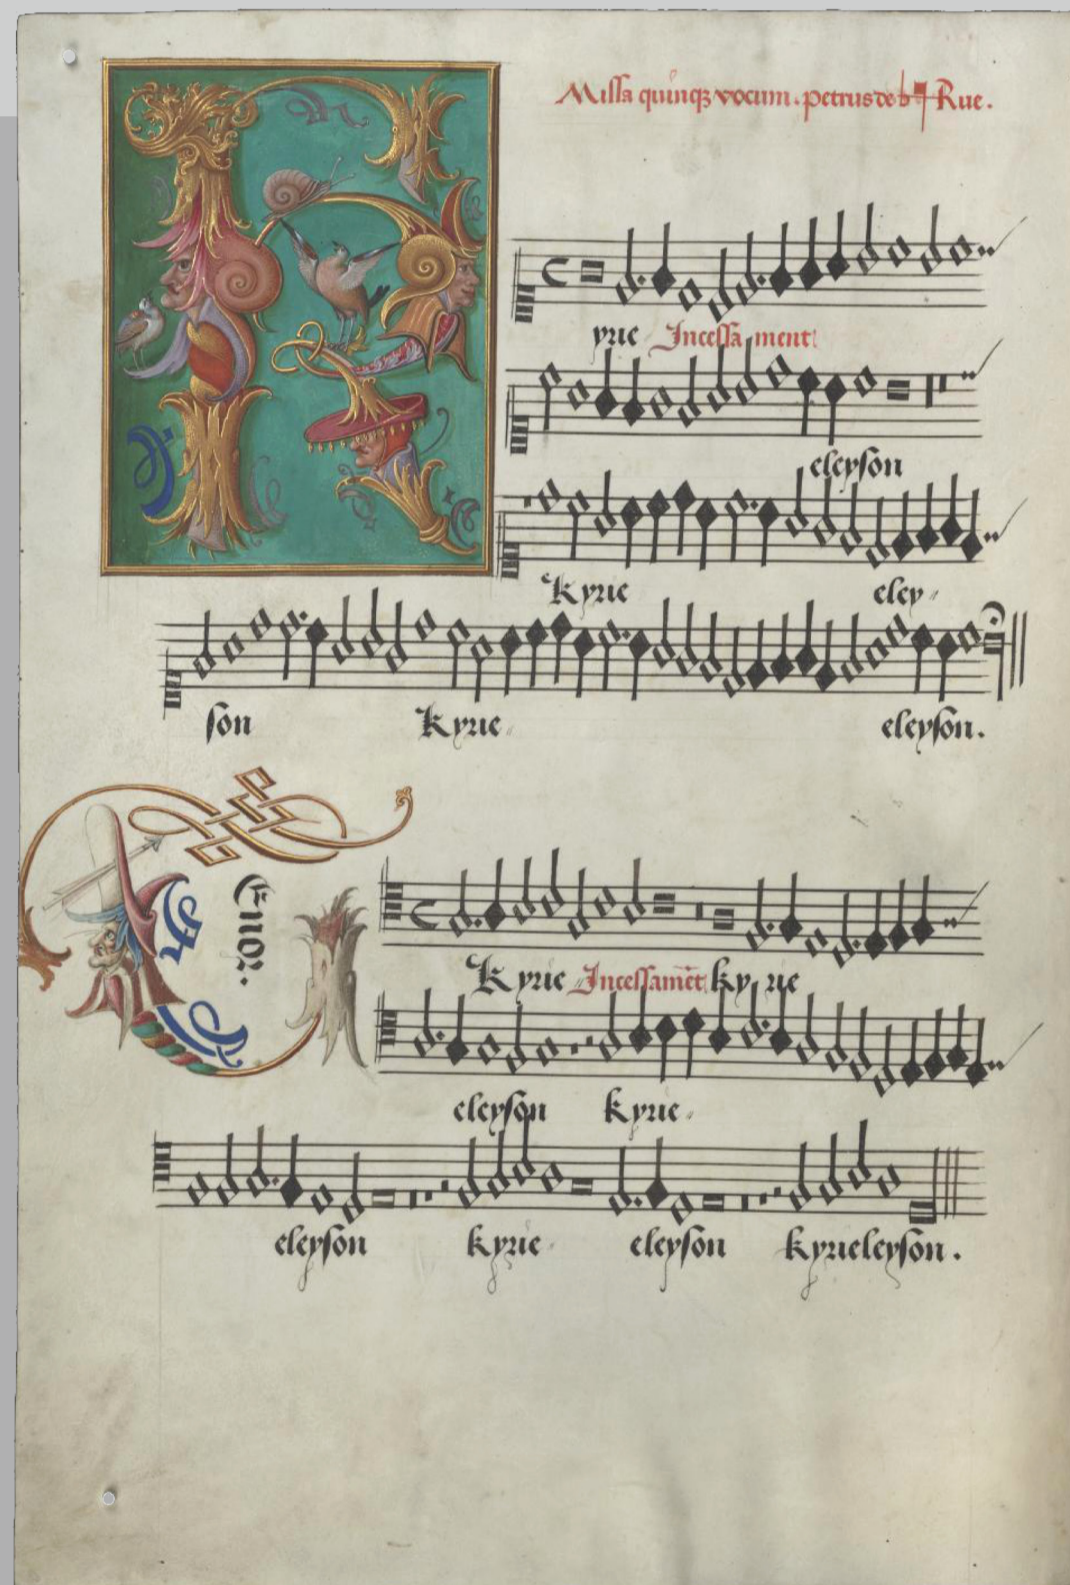 Missa quinqz vocum . petrus de Rue .
K
yrie Incessa ment
eleyson
Kyrie eley
son Kyrie eleyson .
Tenor .
Kyrie Incessamēt ky rie
eleyson kyrie
eleyson kyrie eleyson kyrieleyson .